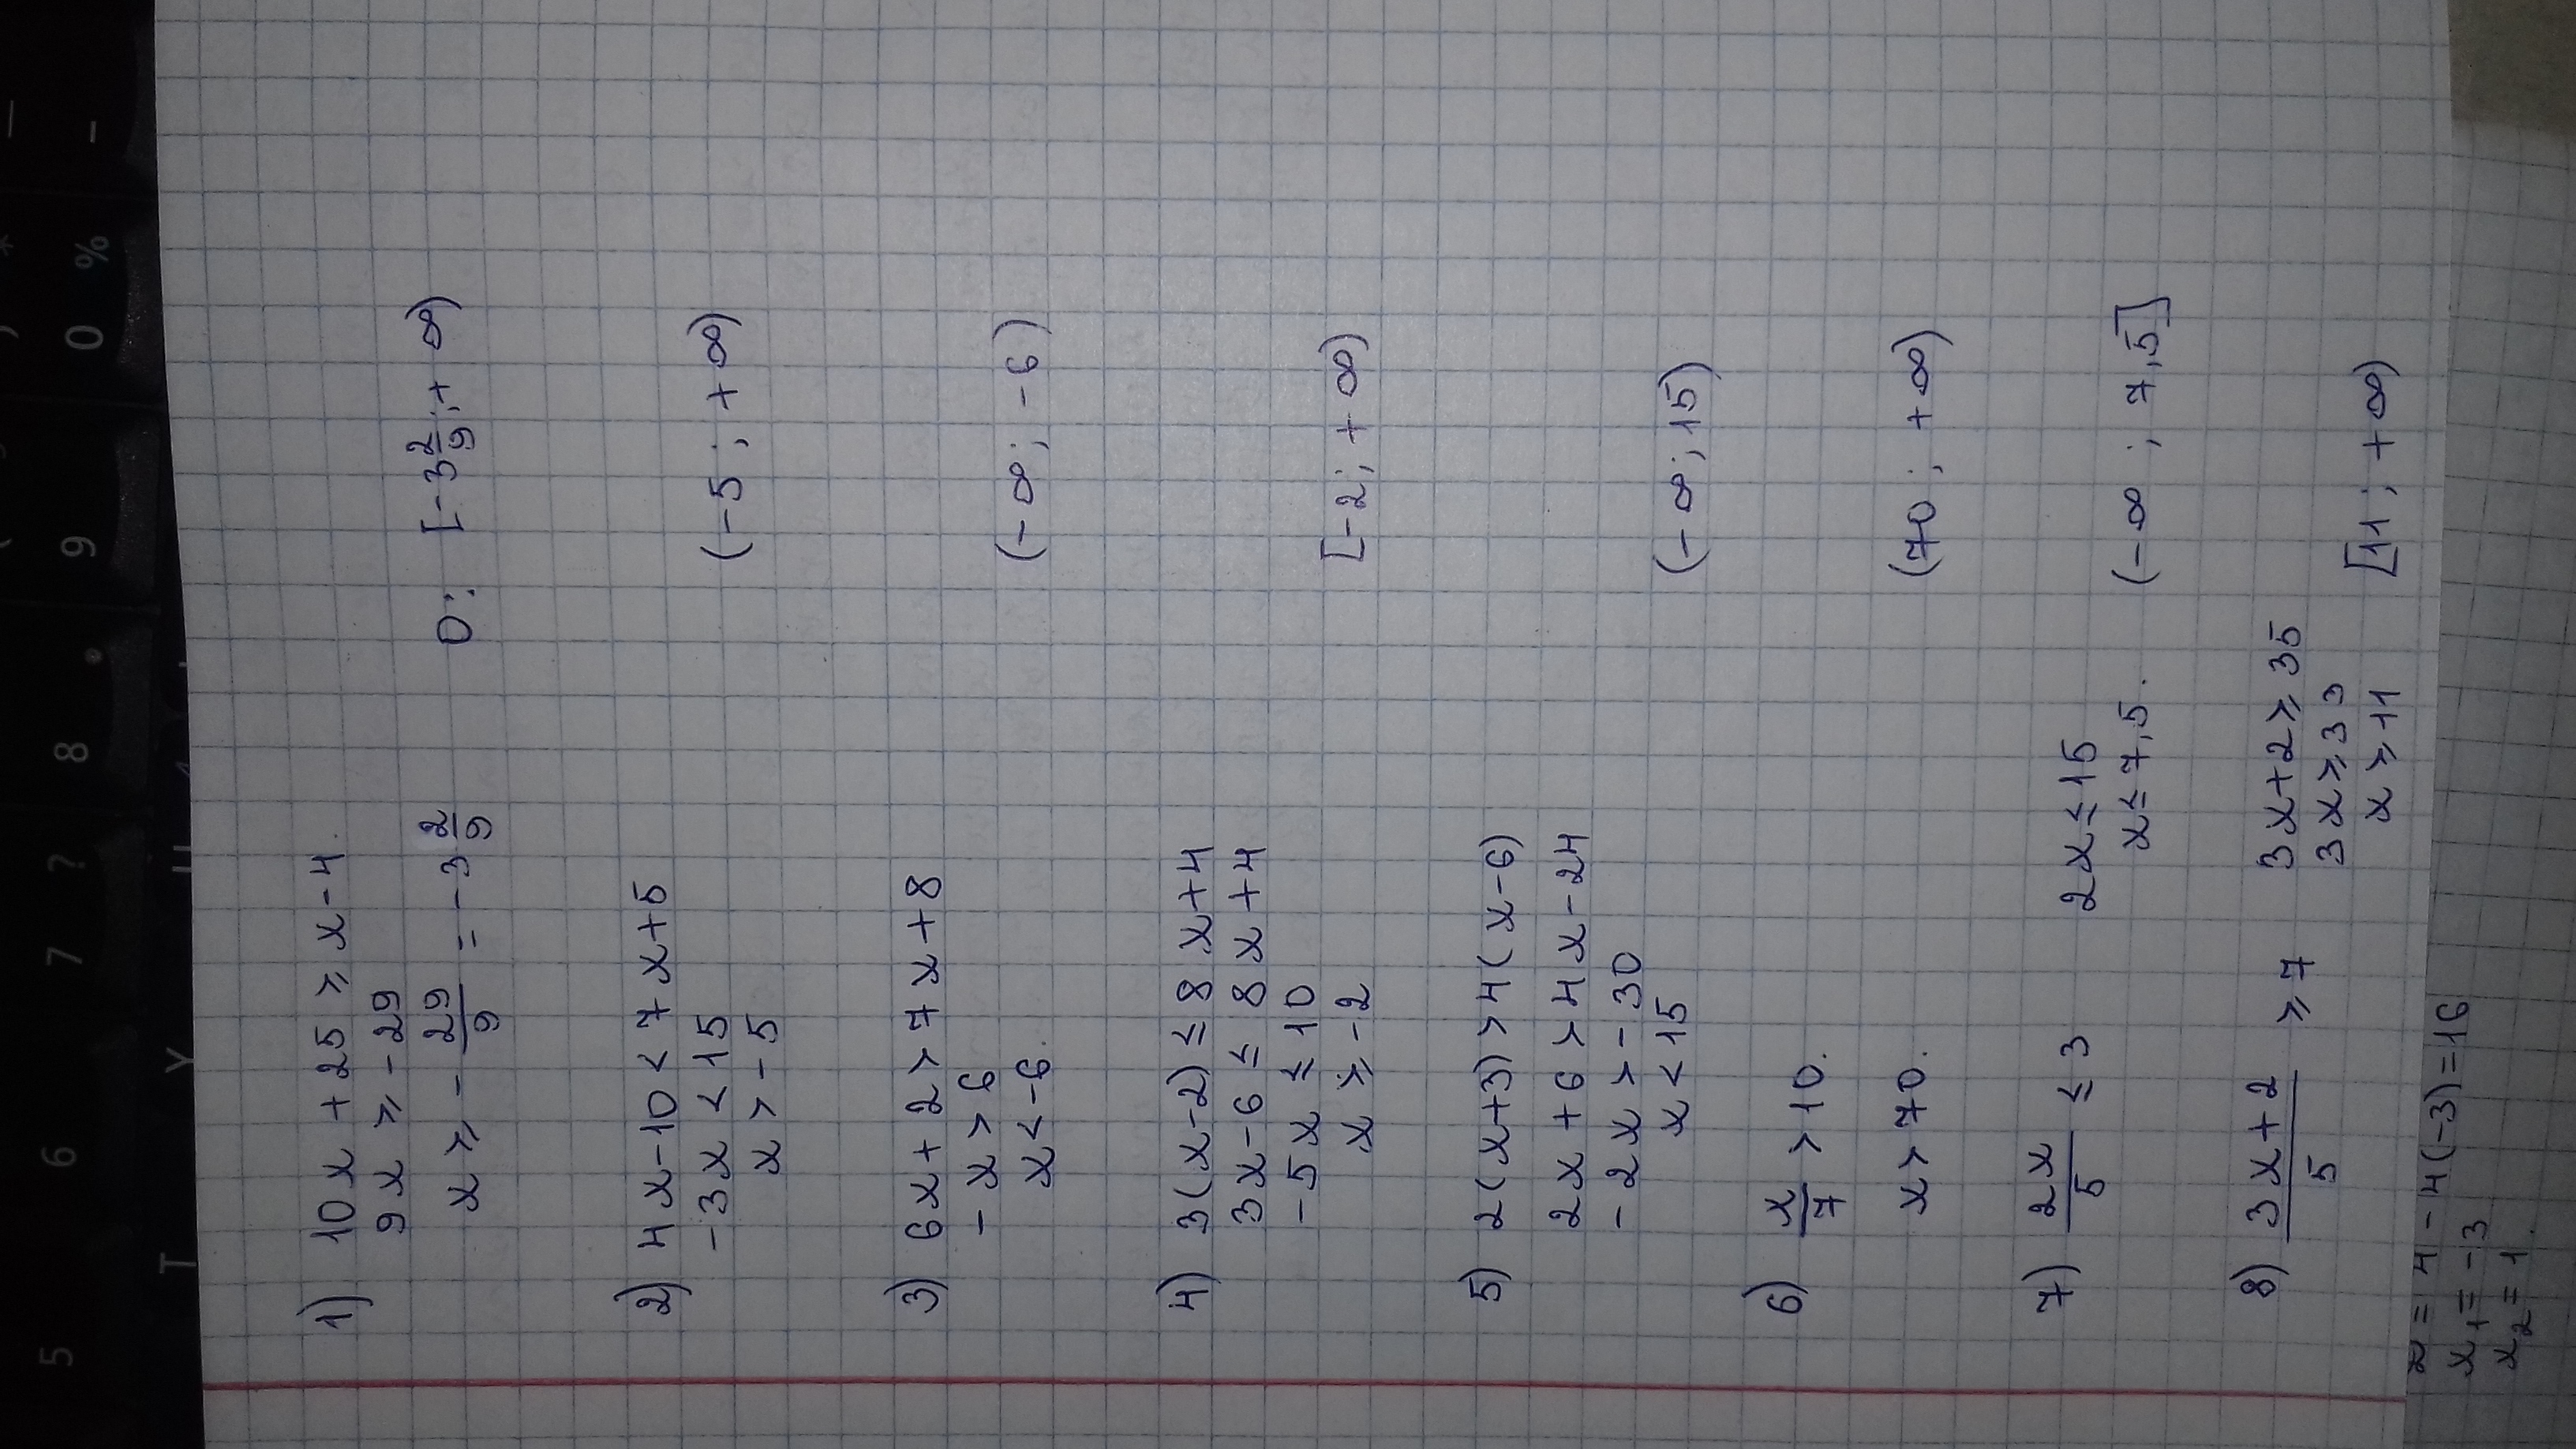 1) 10x + 25 ≥ x - 4
9x ≥ -29
x ≥ - 29/9 = -3 2/9    0: [-3 2/9; + ∞)
2) 4x - 10 < 7x + 5
-3x < 15
x > -5    (-5; +∞)
3) 6x + 2 > 7x + 8
-x > 6
x < -6.    (-∞; -6)
4) 3(x-2) ≤ 8x + 4
3x - 6 ≤ 8x + 4
-5x ≤ 10
x ≥ -2    [-2; +∞)
5) 2(x+3) > 4(x-6)
2x + 6 > 4x - 24
-2x > -30
x < 15    (-∞; 15)
6) x/7 > 10.
x > 70.    (70; +∞)
7) 2x/5 ≤ 3    2x ≤ 15
x ≤ 7,5.    (-∞; 7,5]
8) (3x+2)/5 ≥ 7    3x + 2 ≥ 35
3x ≥ 33
x ≥ 11    [11; +∞)
= 4 - 4(-3) = 16
x₁ = -3
x₂ = 1.
5 6 7 ? 8 . 9 0 % -
T Y